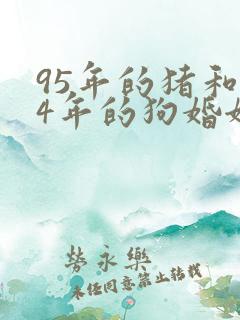 95年的猪和
4年的狗婚
劳永乐
未经同意禁止转载